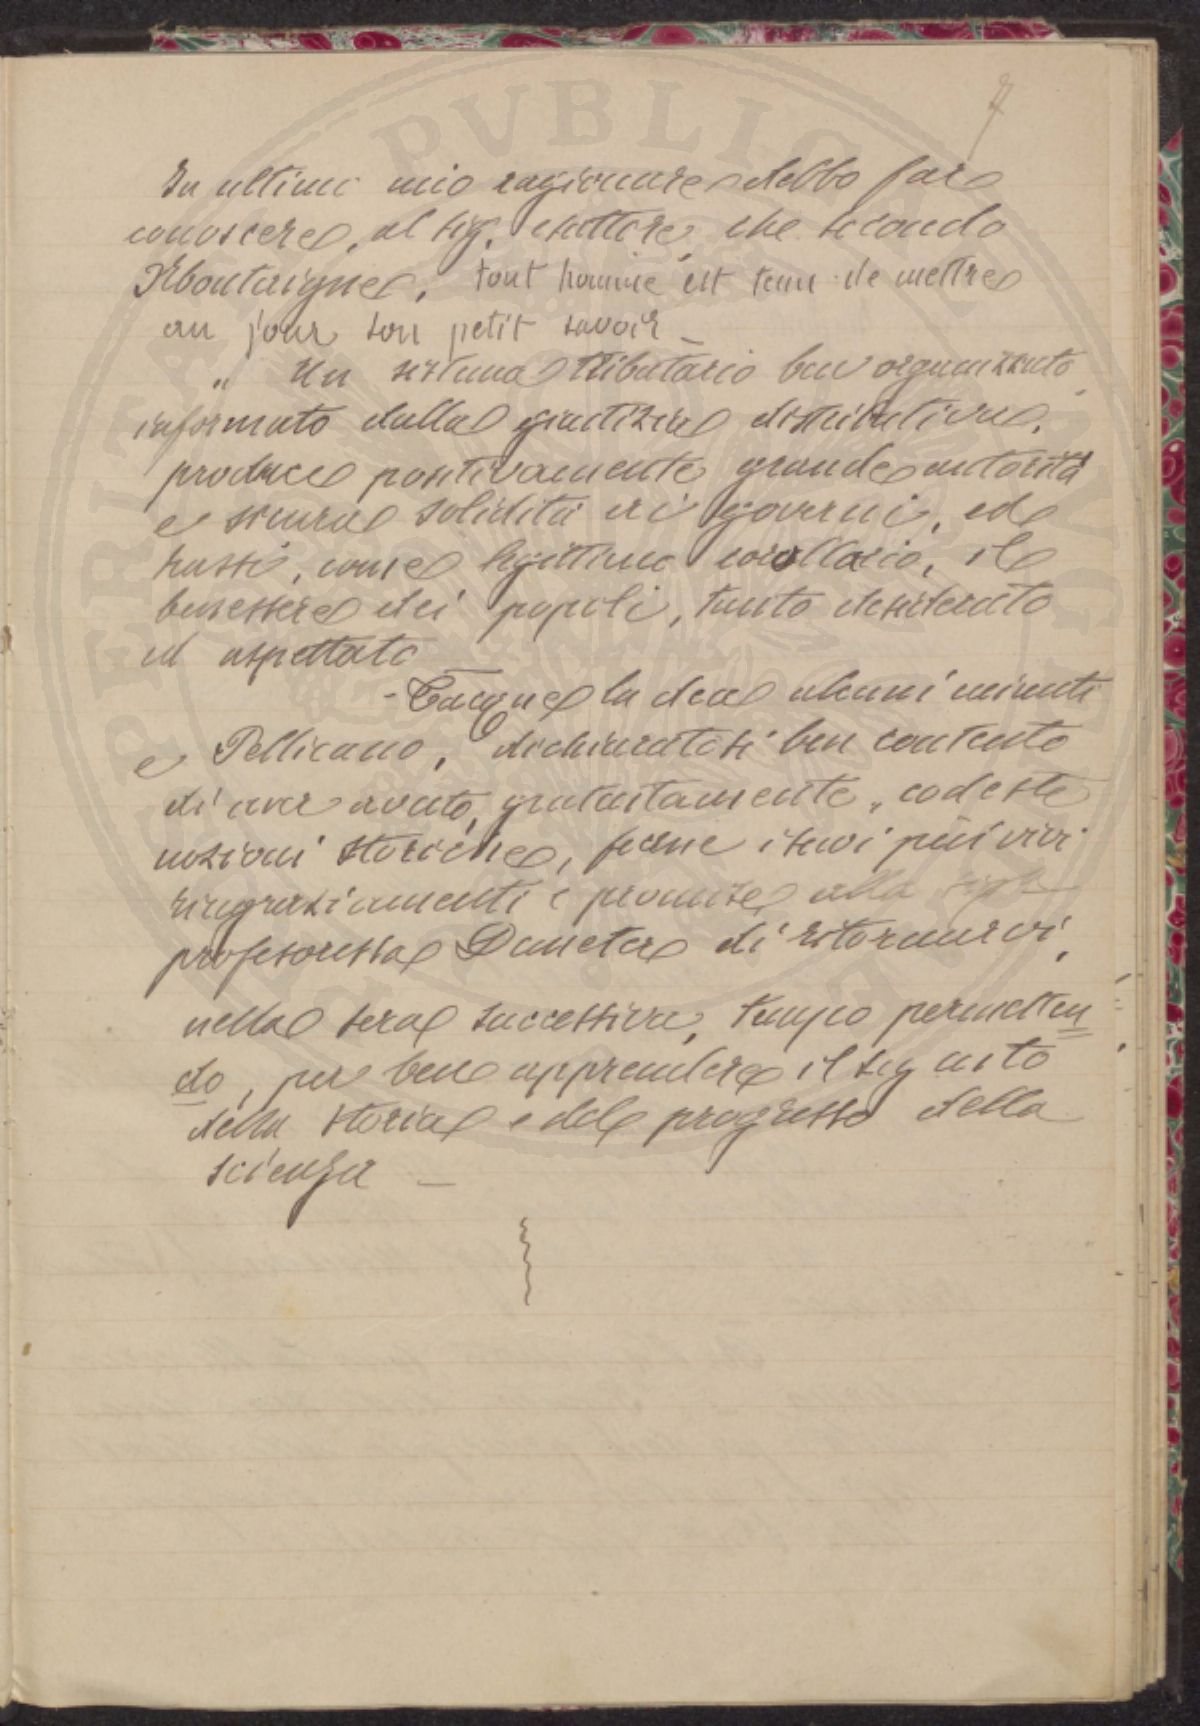 7
In ultimo mio ragionare debbo fare
conoscere, al sig. esattore, che secondo
Montaigne, tout homme est tenu de mettre
au jour son petit savoir _
„ Un sistema tributario ben organizzato
informato dalla giustizia distributiva,
produce positivamente grande autorità
e sicura solidità ai governi, ed
hassi, come legittimo corollario, il
benessere dei popoli, tanto desiderato
ed aspettato
- Tacque la dea alcuni minuti
e Pellicano, dichiaratosi ben contento
di aver avuto, gratuitamente, codeste
nozioni storiche, fecene i suoi più vivi
ringraziamenti e promise alla
professoressa Demetra di ritornarvi,
nella sera successiva, tempo permetten
do, per bene apprendere il seguito
della storia e del progresso della
scienza _